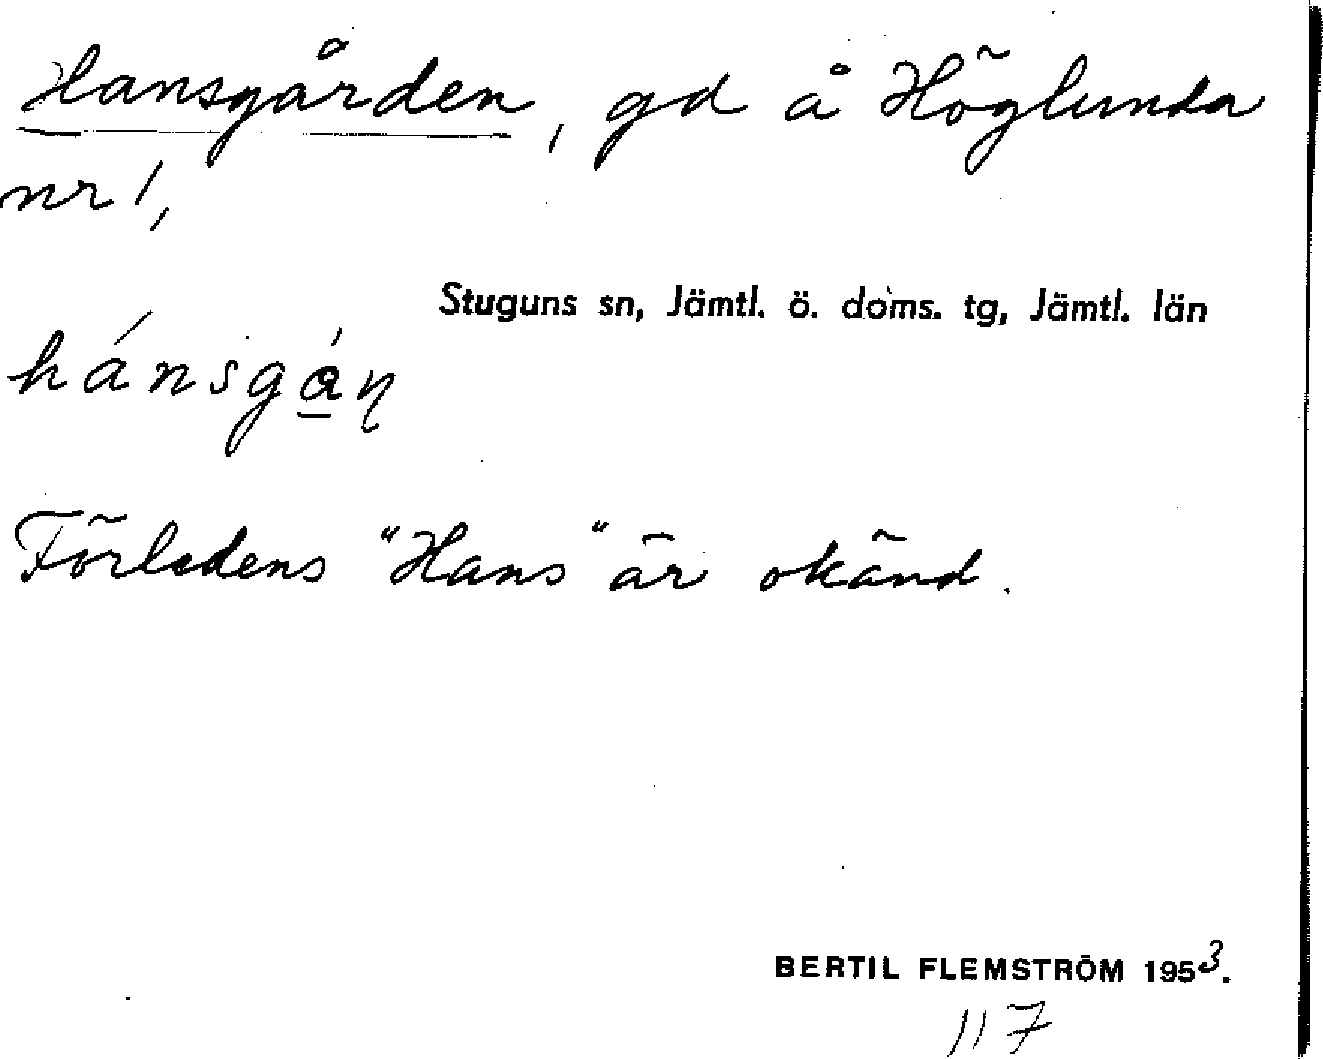 Hansgården, gd å Höglunda
nr 1,
Stuguns sn, Jämtl. ö. doms. tg, Jämtl. län
hánsgá̱ɳ
Förledens "Hans" är okänd.
BERTIL FLEMSTRÖM 1953.
117